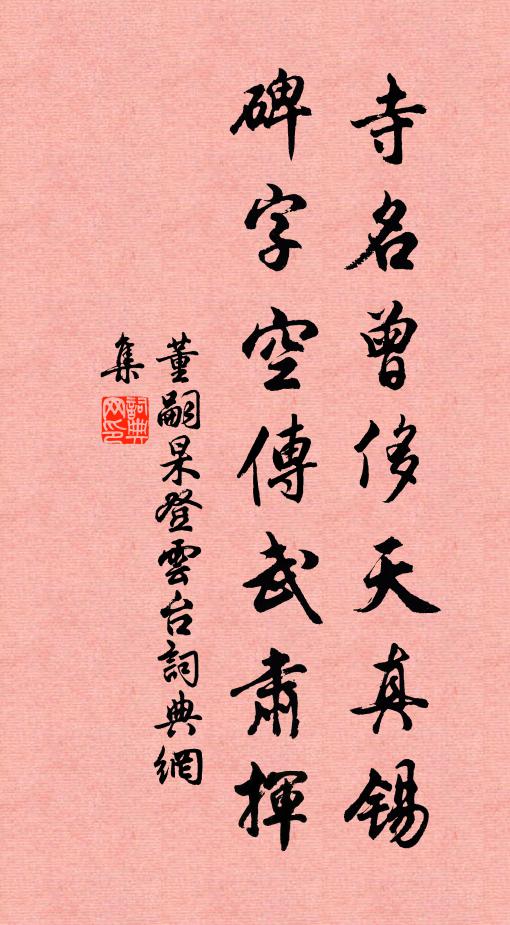 寺名曾侈天真錫
碑字空傳武肅揮
董嗣杲登雲台詞典網
集
詞典網印